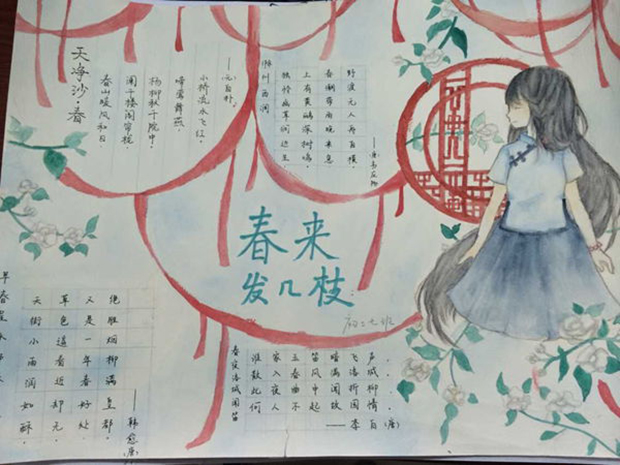 天净沙·春
春山暖风和日，
阑干楼阁帘栊，
杨柳秋千院中。
啼莺舞燕，
小桥流水飞红。
——元白朴
滁州西涧
独怜幽草涧边生
上有黄鹂深树鸣
春潮带雨晚来急
野渡无人舟自横
——唐韦应物
春来
发几枝
初二七班
天街小雨润如酥，
草色遥看近却无。
又是一年春好处
绝胜烟柳满皇都.
——韩愈（唐）
春夜洛城闻笛
谁家玉笛暗飞声
散入春风满洛城
此夜曲中闻折柳
何人不起故园情
——李白（唐）